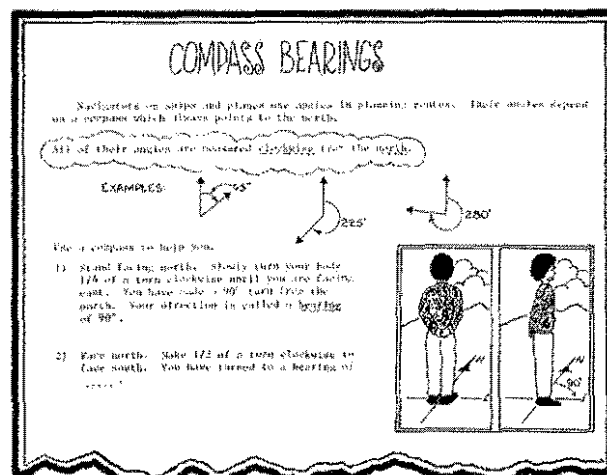 COMPASS BEARINGS
Navigators on ships and planes use angles in planning routes. Their angles depend
on a compass which always points to the north.
All of their angles are measured clockwise from the north.
EXAMPLES:
45°
225°
280°
Use a compass to help you.
1) Stand facing north. Slowly turn your body
1/4 of a turn clockwise until you are facing
east. You have made a 90° turn from the
north. Your direction is called a bearing
of 90°.
2) Face north. Make 1/2 of a turn clockwise to
face south. You have turned to a bearing of
N
N
90°